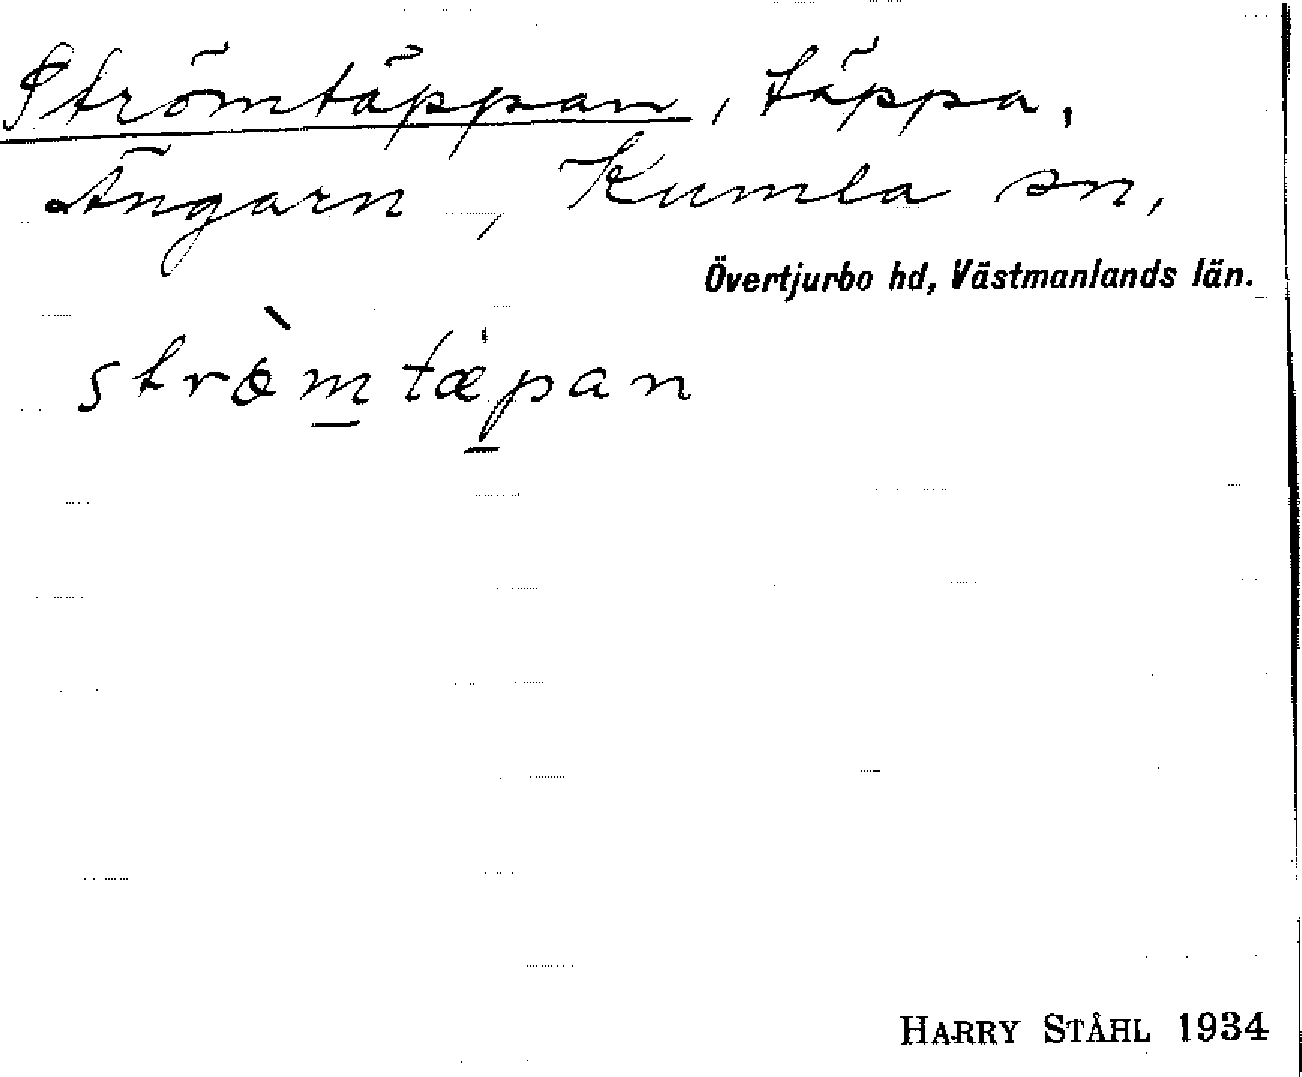 Strömtäppan, täppa,
Ängarn, Kumla sn,
Övertjurbo hd, Västmanlands län.
strö̀mtæpan
HARRY STÅHL 1934